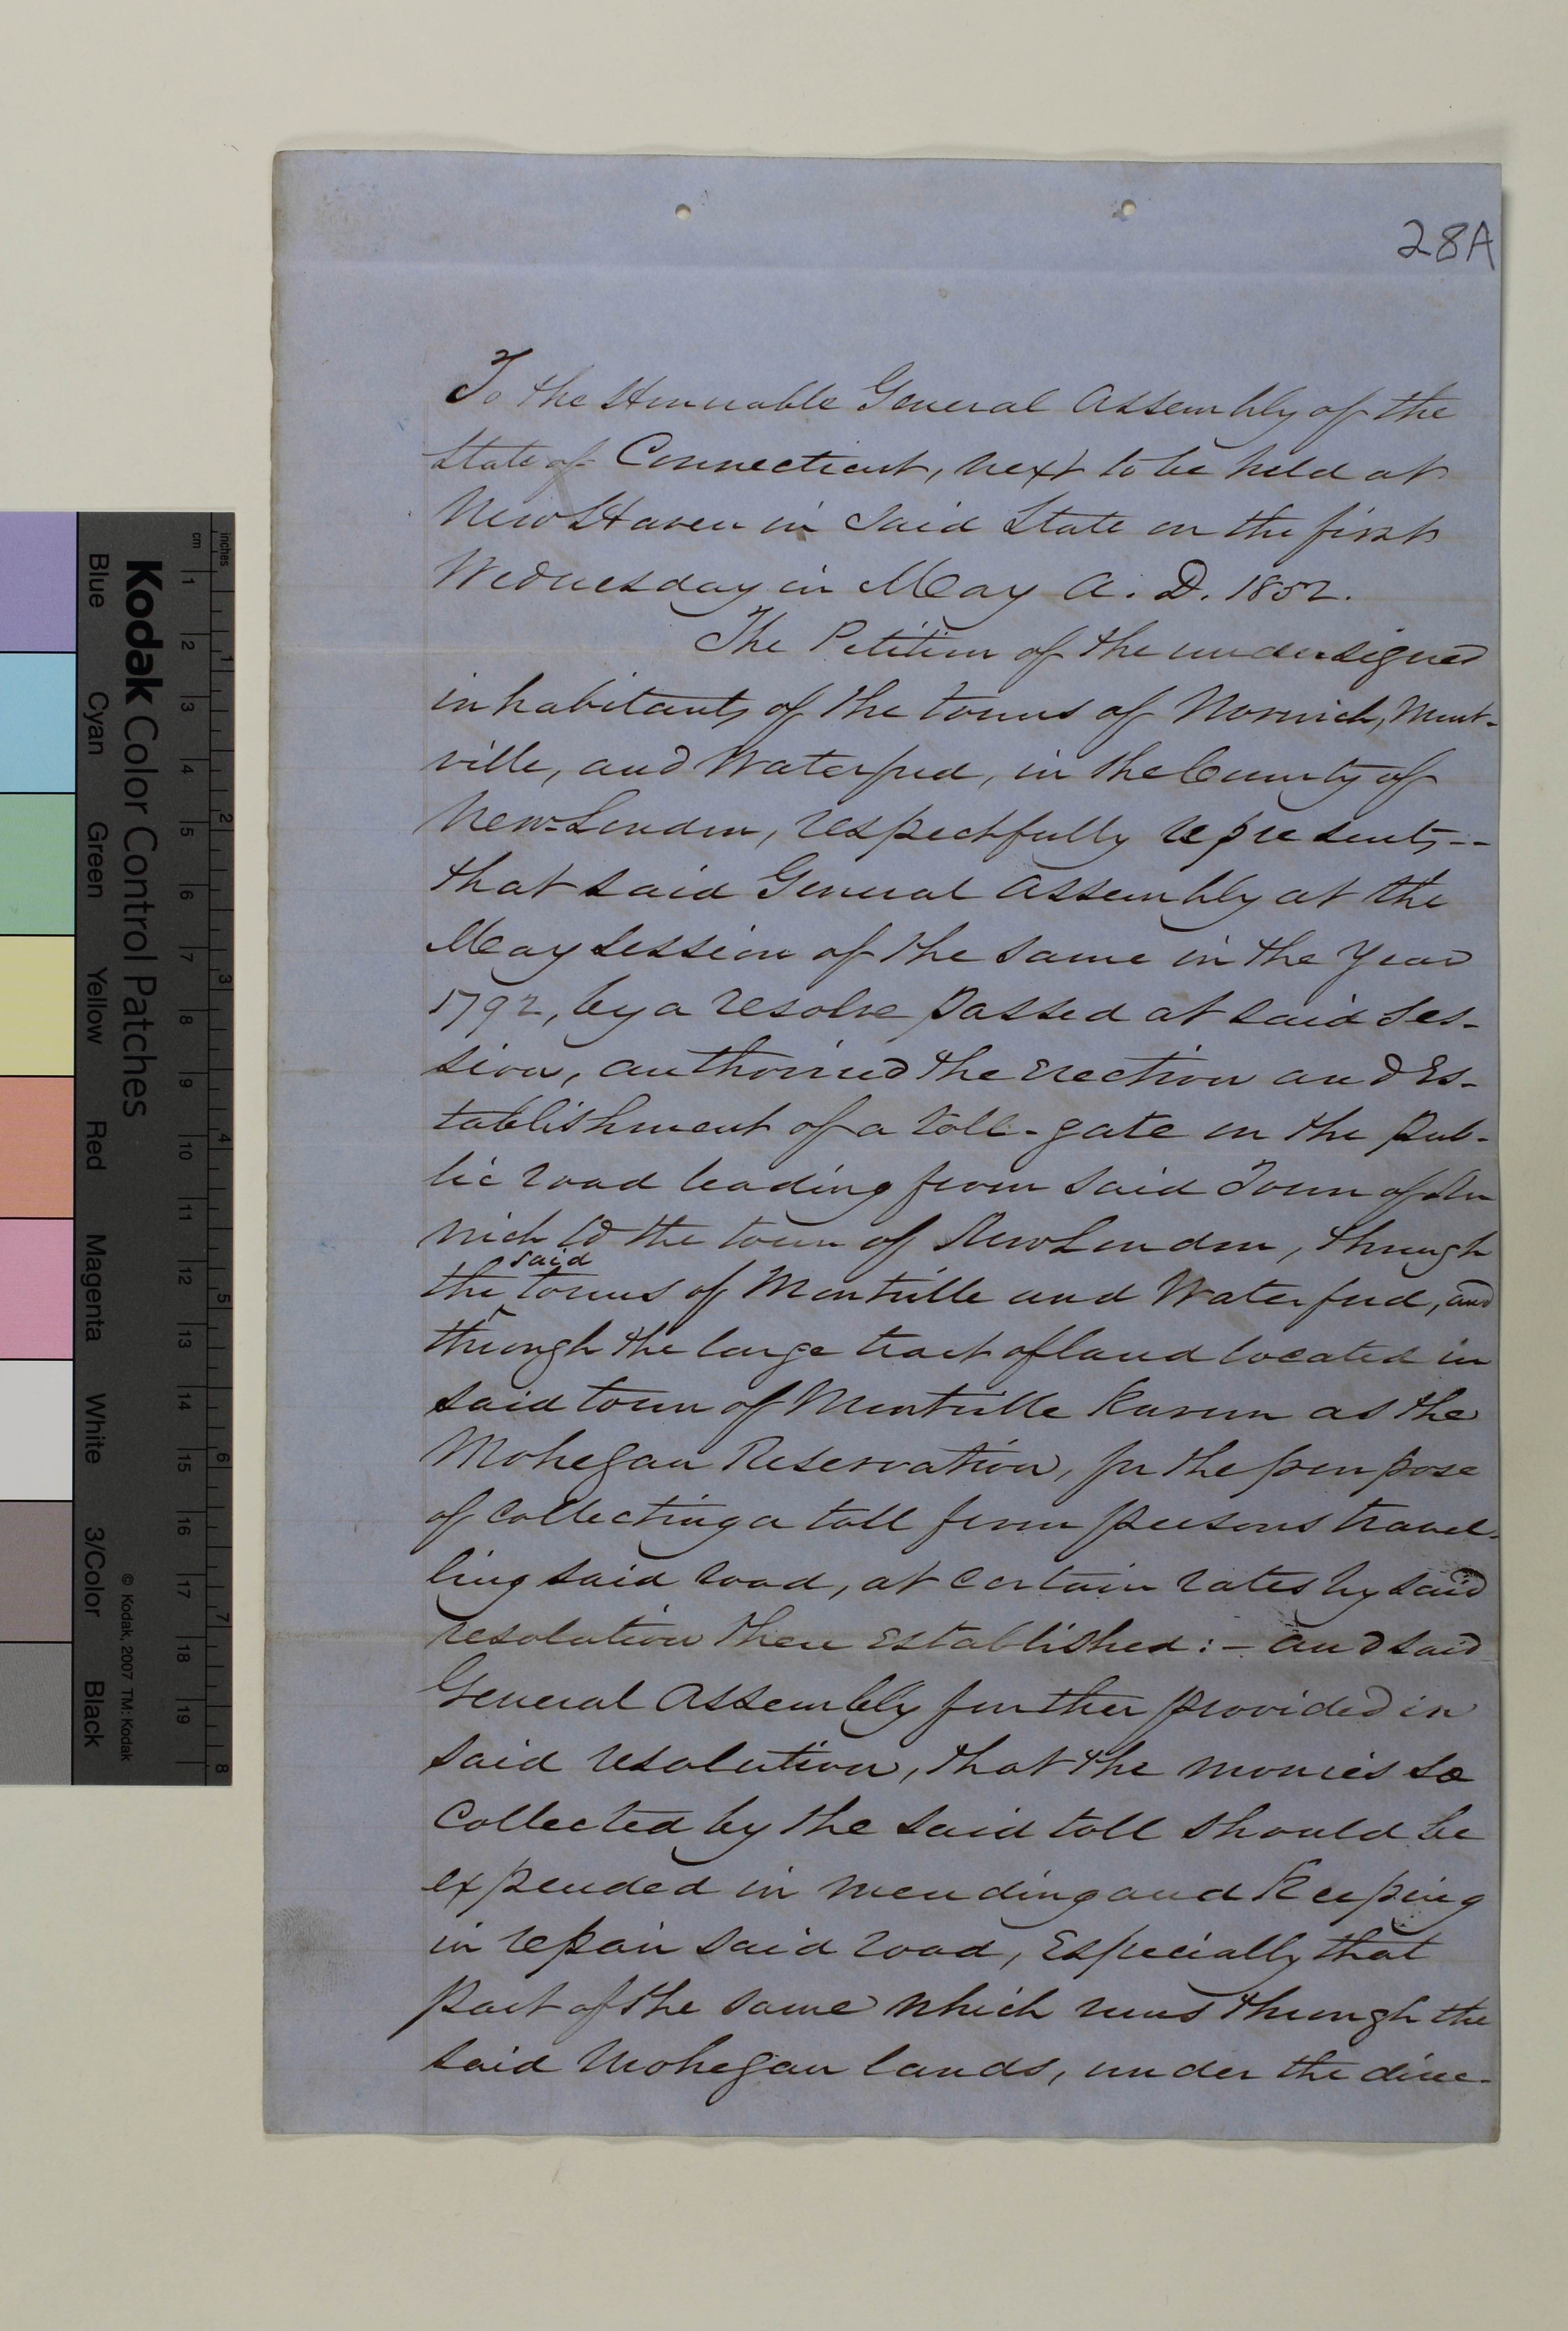 28A
To the Honorable General Assembly of the
State of Connecticut, next to be held at
New Haven in said State on the first
Wednesday in May A. D. 1852.
The Petition of the undersigned
inhabitants of the towns of Norwich, Mont-
ville, and Waterford, in the County of
New-London, respectfully represents--
that said General Assembly at the
May session of the same in the year
1792, by a resolve passed at said ses-
sion, authorized the erection and es-
tablishment of a toll-gate on the pub-
lic road leading from said Town of Nor
wich to the town of New London, through
said
the towns of Montville and Waterford, and
through the large tract of land located in
said town of Montville known as the
Mohegan Reservation, for the purpose
of collecting a toll from persons travel-
ling said road, at certain rates by said
resolution then established:- and said
General Assembly further provided in
said resolution, that the monies so
collected by the said toll should be
expended in mending and keeping
in repair said road, especially that
part of the same which runs through the
said Mohegan lands, under the direc-
inches
cm
1 2 3 4 5 6 7 8
1 2 3 4 5 6 7 8 9 10 11 12 13 14 15 16 17 18 19
Kodak Color Control Patches
© Kodak, 2007 TM: Kodak
Blue Cyan Green Yellow Red Magenta White 3/Color Black